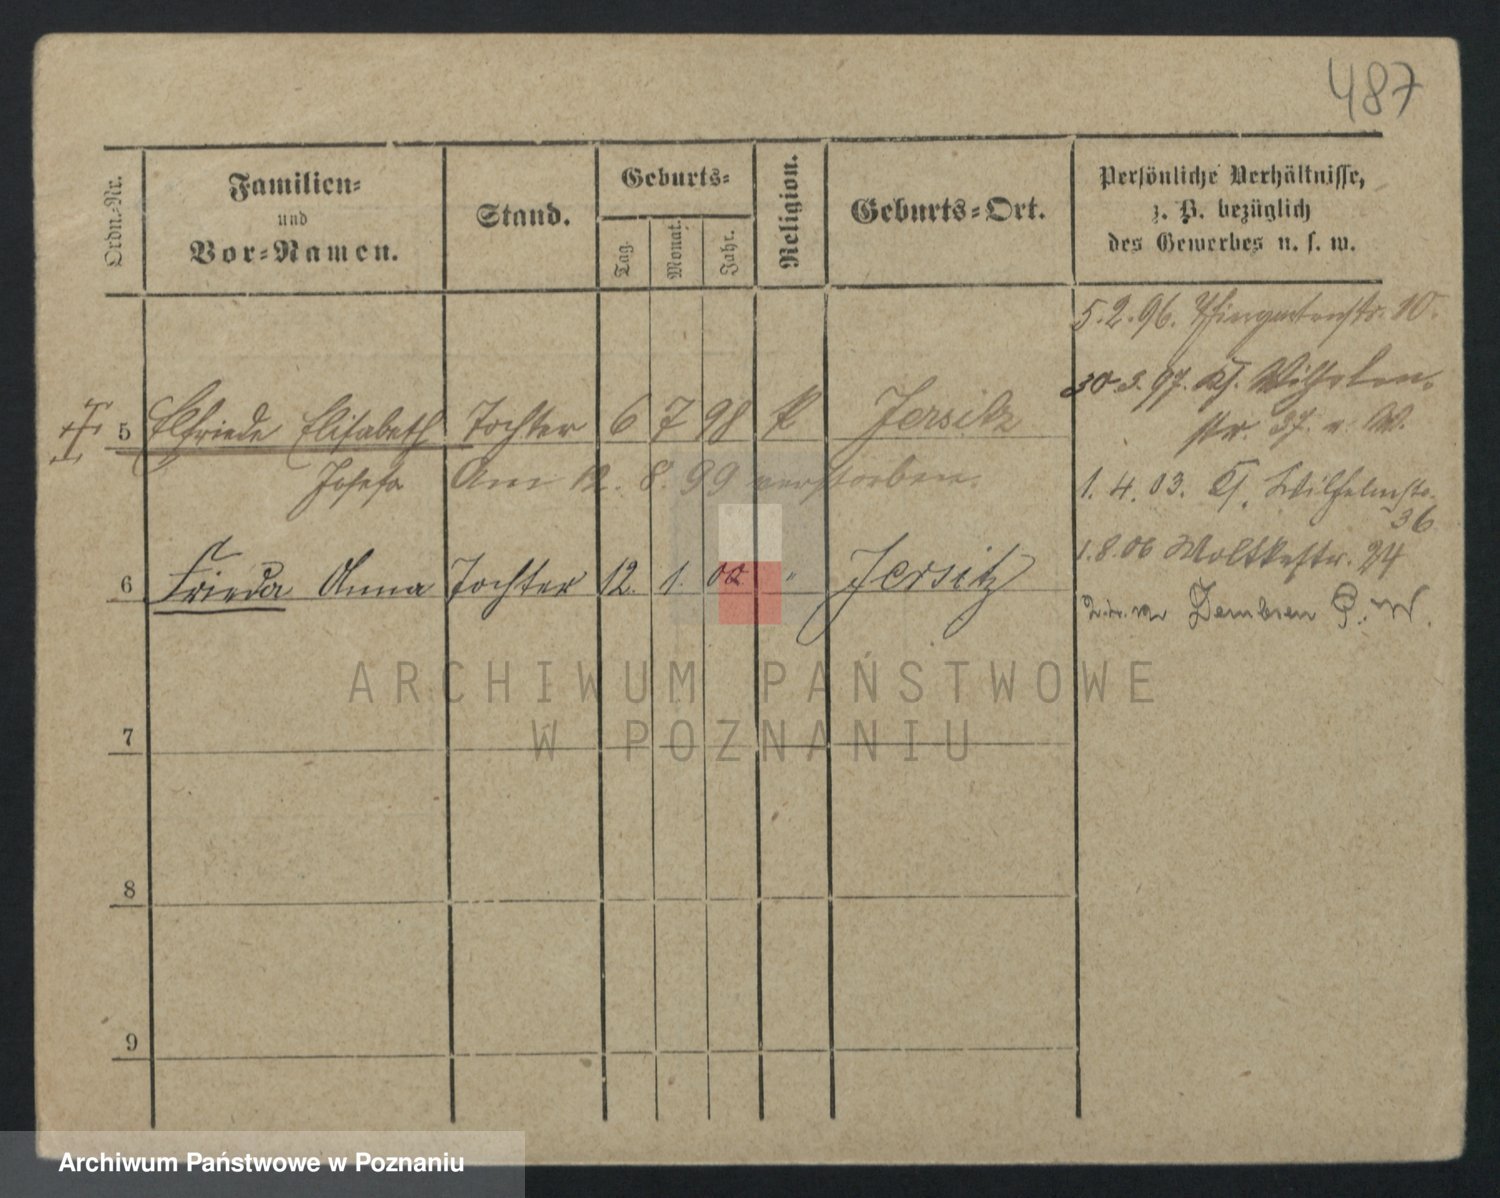 487
Ordn.-Nr.
Familien-
und
Vor-Namen.
Stand.
Geburts-
Tag.
Monat.
Jahr.
Religion.
Geburts-Ort.
Persönliche Verhältnisse,
z. B. bezüglich
des Gewerbes u. s. w.
5.2.96. 10.
30.3.97. Kl. Wilhelm-
str. 37. n. W.
5 Elfriede Elisabeth Tochter 6 7 98 k Jersitz
Josefa Am 12. 8. 99 verstorben.
1. 4. 03. Kl. Wilhelmstr.
36
1.8.06 Moltkestr. 24
6 Frieda Anna Tochter 12. 1. 00 " Jersitz
Dembsen P. W.
7
8
9
ARCHIWUM PAŃSTWOWE
W POZNANIU
Archiwum Państwowe w Poznaniu